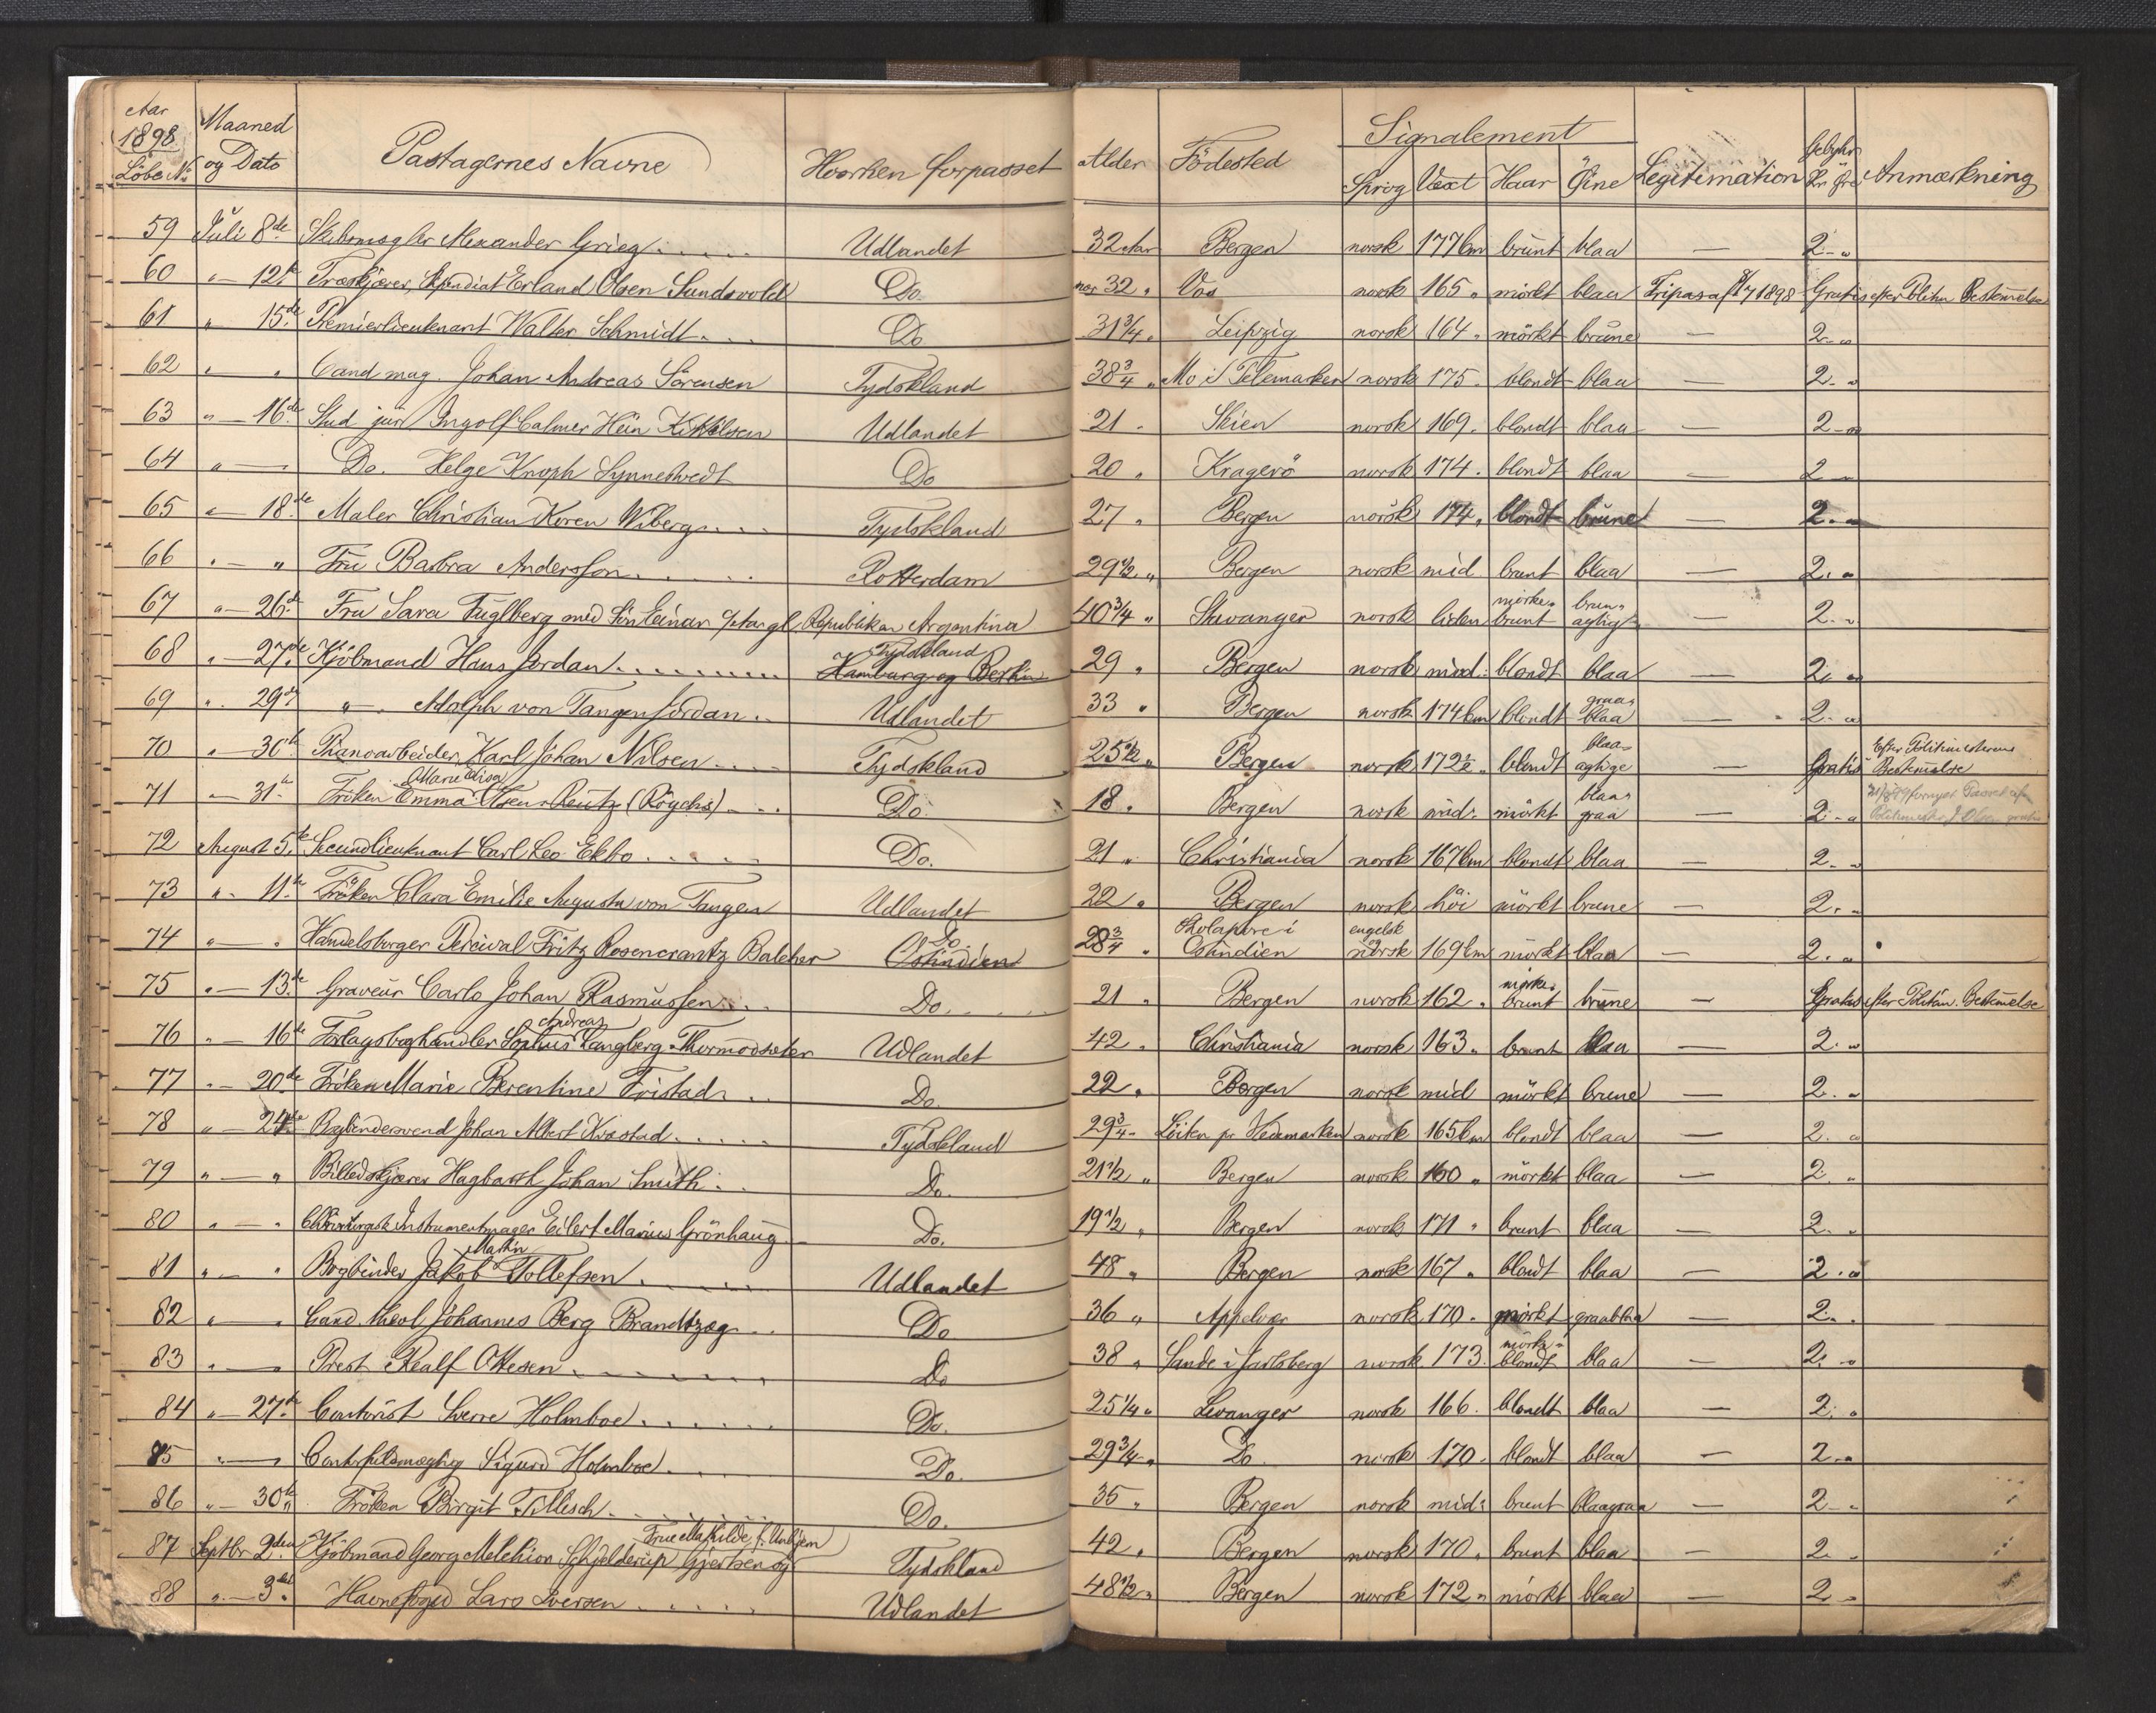 Aar 1898 Löbe No Maaned og Dato Pastagernes Navne Hvorhen forpasset Alder Födested Signalement Sprog Vext Haar Öine Legitimation Gebyhr Kr Öre Anmærkning
59 Juli 8de Skibsmægler Alexander Grieg Udlandet 32 Aar Bergen norsk 177 Cm brunt blaa — 2 - "
60 " - 12te Træskjærer, Stipendiat Erland Olsen Sundsvold Do. 32 " Vos norsk 165 " mörkt blaa 1898 Gratis efter Politim Bestemmelse
61 " 15de Premierlieutenant Walter Schmidt Do 31 3/4 " Leipzig norsk 164 " mörkt brune — 2 - "
62 " " Cand mag. Johan Andreas Sörensen Tydskland 38 3/4 " Mo i Telemarken norsk 175 " blondt blaa — 2 - "
63 " - 16de Stud jur Ingolf Calmer Hein Kittilsen Udlandet 21 " Skien norsk 169 " blondt blaa — 2 - "
64 " — " Do. Helge Knoph Synnestvedt Do 20 " Kragerö norsk 174 " blondt blaa — 2 - "
65 " - 18de Maler Christian Koren Wiberg Tydskland 27 " Bergen norsk 174 " blondt brune — 2 - "
66 " - " Fru Barbra Andersson Rotterdam 29 1/2 " Bergen norsk mid brunt blaa — 2. "
67 " - 26de Fru Sara Fuglberg med Sön Einar Republiken Argentina 40 3/4 " Stavanger norsk liden mörke- brunt brun- agtig — 2. "
68 " - 27de Kjöbmand Hans Jordan Tydskland Hamburg og Berlin 29 " Bergen norsk mid: blondt blaa — 2. "
69 " 29de " Adolph von Tangen Jordan Udlandet 33 " Bergen norsk 174 Cm blondt graa- blaa — 2. "
70 " - 30te Pianoarbeider Karl Johan Nilsen Tydskland 25 1/2 " Bergen norsk 172 1/2 " blondt blaa- agtige — Gratis Efter Politimesterens Bestemmelse
71 " - 31te Fröken Emma Olsen Reutz Do. 18 " Bergen norsk mid: mörkt blaa- graa — 2. "
72 August 5te Secundlieutenant Carl Leo Ekbo Do. 21 " Christiania norsk 167 Cm blondt blaa — 2. "
73 " - 11te Fröken Clara Emilie Augusta von Tangen Udlandet 22 " Bergen norsk höi mörkt brune — 2. "
74 " — " Handelsborger Percival Fritz Rosencrantz Balcher Do. Ostindien 28 3/4 " Kolapore i Ostindien engelsk og norsk 169 Cm mörkt blaa — 2. "
75 " - 13de Graveur Carlo Johan Rasmussen Do. 21 " Bergen norsk 162 " mörke- brunt brune — Gratis efter Politim. Bestemmelse
76 " - 16de Forlagsboghandler Sophus Andreas Langberg Thormodsæter Udlandet 42 " Christiania norsk 163 " brunt blaa — 2. "
77 " - 20de Fröken Marie Berentine Fristad Do. 22 " Bergen norsk mid mörkt brune — 2. "
78 " - 24de Bogbindersvend Johan Albert Krostad Tydskland 29 3/4 " Löiten pr Hedemarken norsk 165 Cm blondt blaa — 2. "
79 " — " Billedskjærer Hagbarth Johan Smith Do. 21 1/2 " Bergen norsk 160 " mörkt blaa — 2. "
80 " - " Chirurgisk Instrumentmager Eilert Marius Grönhaug Do. 19 1/2 " Bergen norsk 171 " brunt blaa — 2. "
81 " — " Bogbinder Jakob Martin Tollefsen Udlandet 48 " Bergen norsk 167 " blondt blaa — 2. "
82 " — " Cand. theol Johannes Berg Brandtzæg Do 36 " Appelvær norsk 170 " mörkt graablaa — 2. "
83 " — " Prest Realf Ottesen Do 38 " Sande i Jarlsberg norsk 173 " mörke- blondt blaa — 2. "
84 " - 27de Contorist Sverre Holmboe Do. 25 1/4 " Levanger norsk 166 " blondt blaa — 2. "
85 " — " Sigurd Holmboe Do. 29 3/4 " Do. norsk 170 " blondt blaa — 2. "
86 " - 30te Fröken Birgit Tillisch Do. 35 " Bergen norsk mid: brunt blaagraa — 2 - "
87 Septbr 2den Kjöbmand Georg Melchior Schjelderup Gjertsen og Frue Mathilde f. Tydskland 42 " Bergen norsk 170 " brunt blaa — 2 - "
88 " - 3die Havnefoged Lars Iversen Udlandet 48 1/2 " Bergen norsk 172 " mörkt blaa — 2 - "